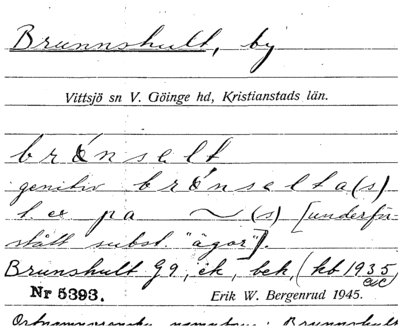 Brunnshult, by
Vittsjö sn V. Göinge hd, Kristianstads län.
brónselt
genitiv brónselta(s)
t. ex på ~ (s) [underför-
stått subst. "ägor"].
Brunshult G9, ek, bek, (kb 1935,
Nr 5393. Erik W. Bergenrud 1945.
Brunnshult